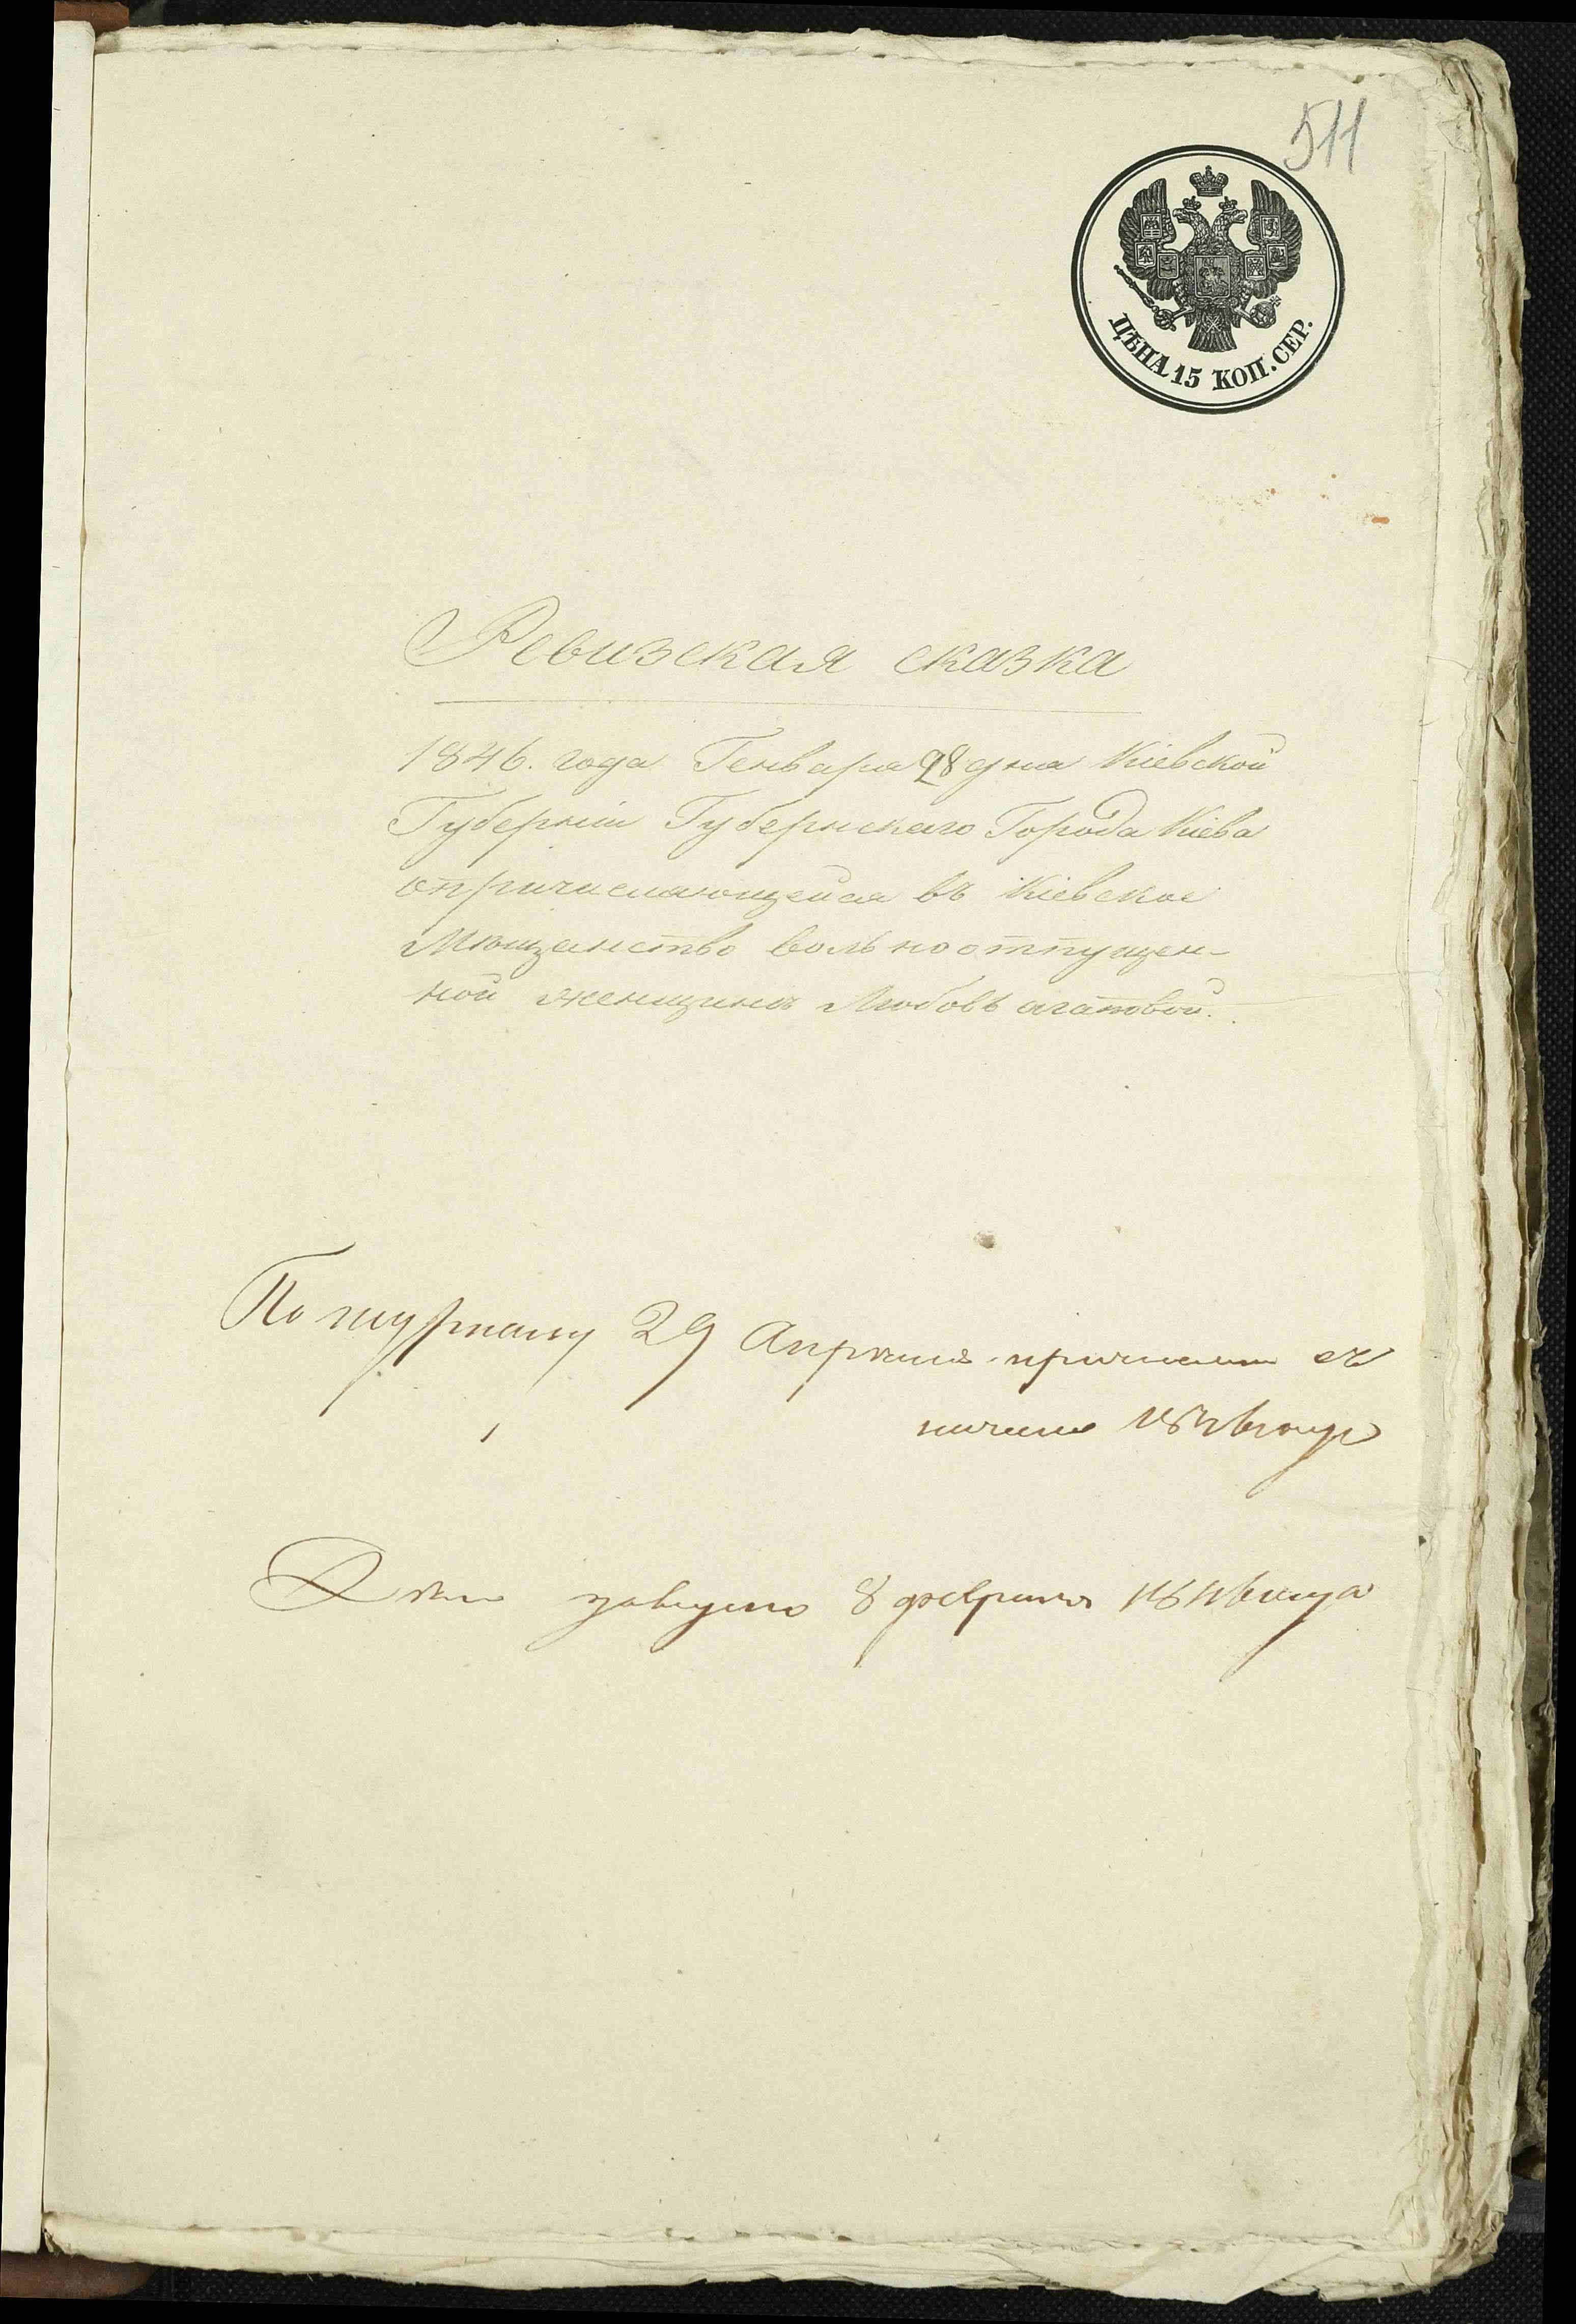 511
ЦѢНА 15 КОП. СЕР.
Ревизская сказка
1846. года Генваря 28 дня Кіевской
Губерніи Губернскаго Города Кіева
опричисляющейся въ Кіевское
Мѣщанство вольноотпущен-
ной женщинѣ Любовь Агатовой.
По журналу 29 Апрѣля причислить съ
начала 1846 года
Дѣло заведено 8 февраля 1846 года